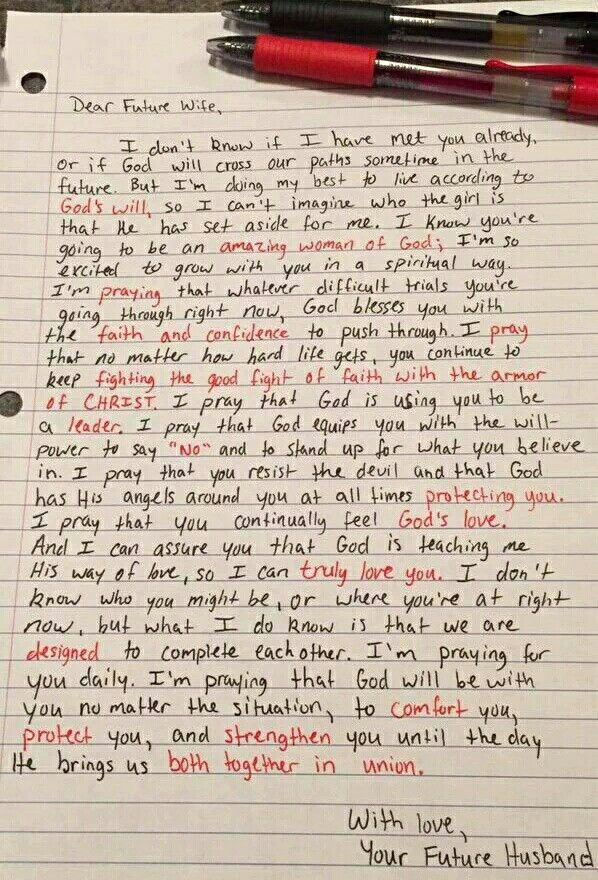 Dear Future Wife,
I don't know if I have met you already,
or if God will cross our paths sometime in the
future. But I'm doing my best to live according to
God's will, so I can't imagine who the girl is
that He has set aside for me. I know you're
going to be an amazing woman of God; I'm so
excited to grow with you in a spiritual way.
I'm praying that whatever difficult trials you're
going through right now, God blesses you with
the faith and confidence to push through. I pray
that no matter how hard life gets, you continue to
keep fighting the good fight of faith with the armor
of CHRIST. I pray that God is using you to be
a leader. I pray that God equips you with the will-
power to say "No" and to stand up for what you believe
in. I pray that you resist the devil and that God
has His angels around you at all times protecting you.
I pray that you continually feel God's love.
And I can assure you that God is teaching me
His way of love, so I can truly love you. I don't
know who you might be, or where you're at right
now, but what I do know is that we are
designed to complete each other. I'm praying for
you daily. I'm praying that God will be with
you no matter the situation, to comfort you,
protect you, and strengthen you until the day
He brings us both together in union.
With love,
Your Future Husband